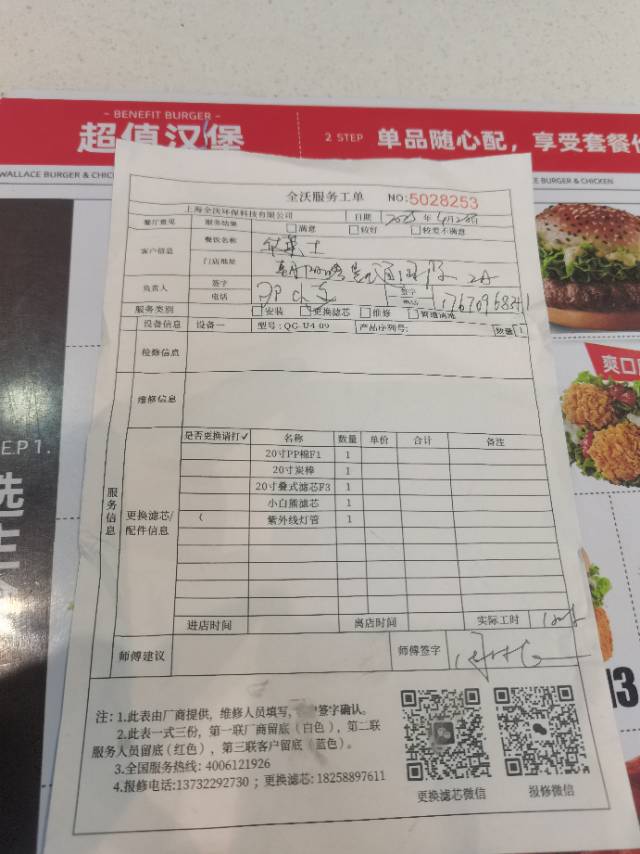 - BENEFIT BURGER -
超值汉堡
2 STEP 单品随心配，享受套餐
WALLACE BURGER & CHICK
BURGER & CHICKEN
全沃服务工单 NO:5028253
上海全沃环保科技有限公司 日期 2025年4月
餐厅意见 服务结果 □满意 □较好 □较差不满意
客户信息 餐饮名称 华莱士
门店地址 2A
负责人 签字 签字
电话 电话
服务类别 □安装 □更换滤芯 □维修 □
设备信息 设备一 型号:QG-U4-09 产品序列号: 数量 1
检修信息
维修信息
爽口
EP1.
选
服务信息
更换滤芯/配件信息
是否更换请打✓ 名称 数量 单价 合计 备注
20寸PP棉F1 1
20寸炭棒 1
20寸叠式滤芯F3 1
小白熊滤芯 1
紫外线灯管 1
进店时间 离店时间 实际工时
师傅建议 师傅签字
13
注：1.此表由厂商提供，维修人员填写，签字确认。
2.此表一式三份，第一联厂商留底（白色），第二联
服务人员留底（红色），第三联客户留底（蓝色）。
3.全国服务热线: 4006121926
4.报修电话:13732292730 ；更换滤芯: 18258897611
更换滤芯微信 报修微信